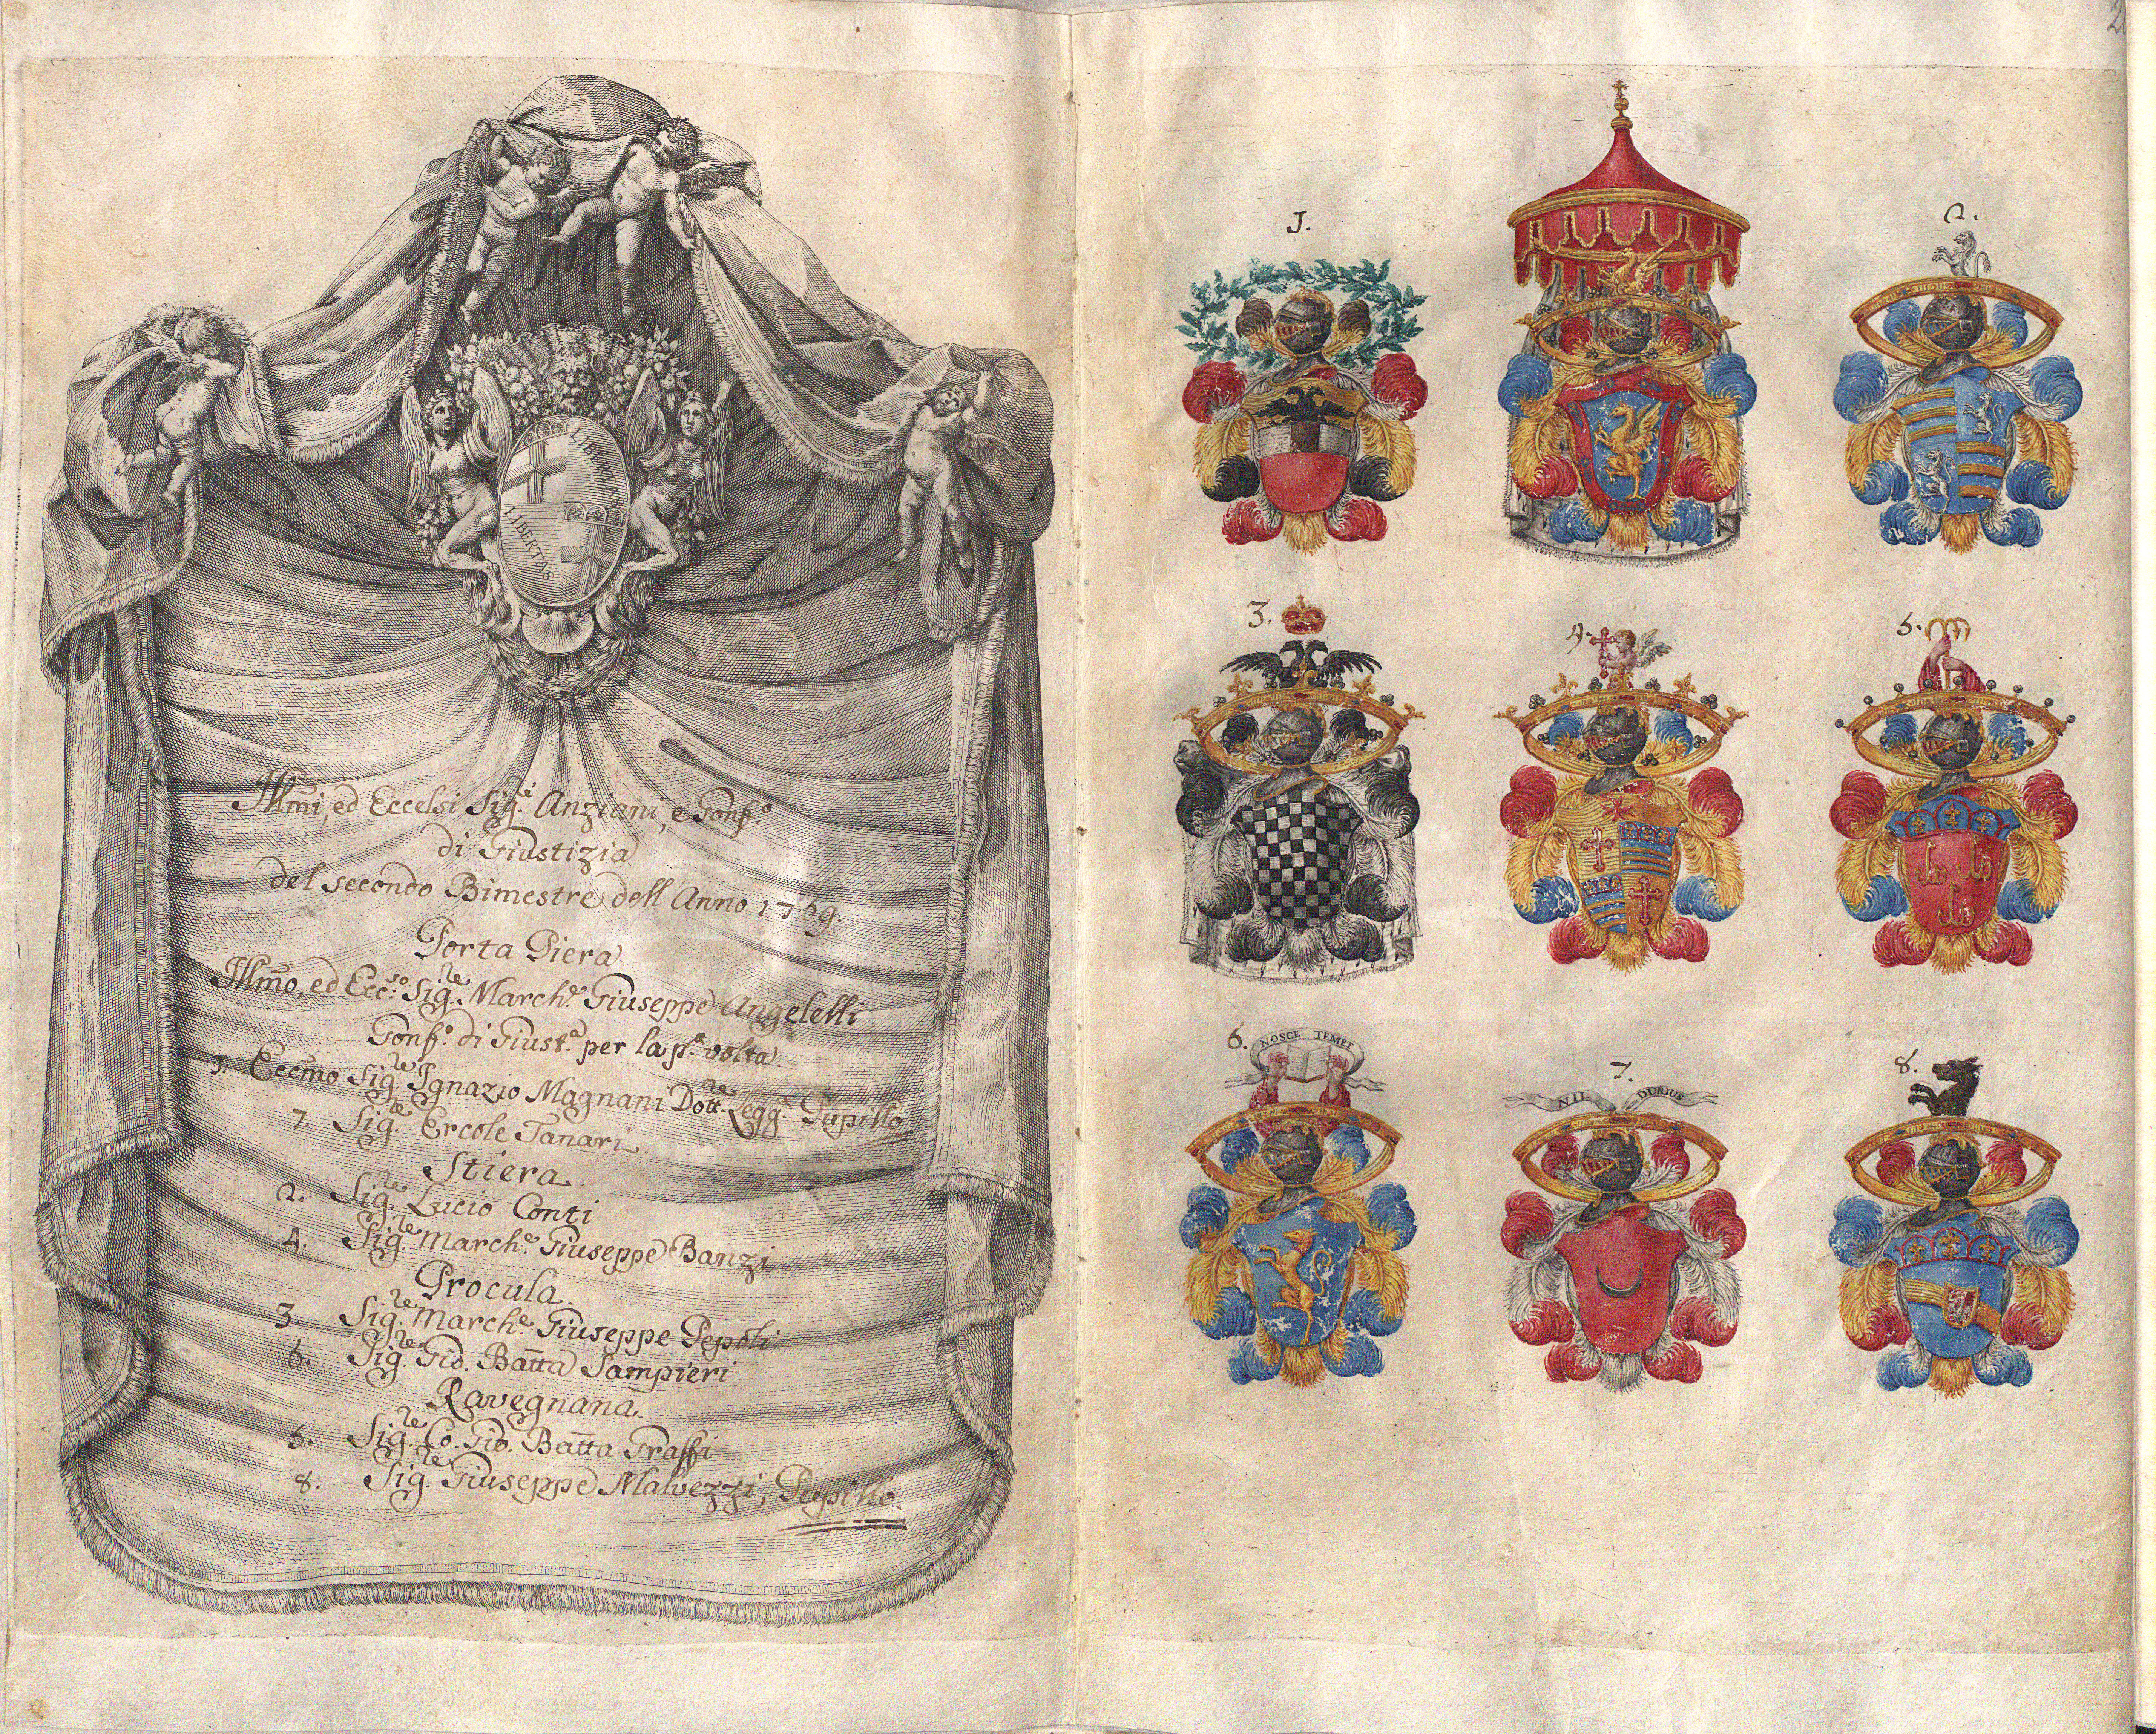 LIBERTAS
LIBERTAS
Illm̃i, ed Eccelsi Sig.i Anziani, e Gonf.o
di Giustizia
del secondo Bimestre dell'Anno 1769.
Porta Piera
Illm̃o, ed Ecc.so Sig.re March.e Giuseppe Angelelli
Gonf.o di Giust.a per la p.a volta.
1. Eccm̃o Sig.re Ignazio Magnani Dott.re Legg.e Pupillo
7. Sig.re Ercole Tanari.
Stiera.
2. Sig.re Lucio Conti
4. Sig.re March.e Giuseppe Banzi
Procula.
3. Sig.re March.e Giuseppe Pepoli
6. Sig.re Gio. Batt̃a Sampieri
Ravegnana.
5. Sig.re Co. Gio. Batt̃a Graffi
8. Sig.re Giuseppe Malvezzi, Pupillo.
1.
2.
3.
4.
5.
6.
NOSCE TEMET
7.
NIL DURIUS
8.